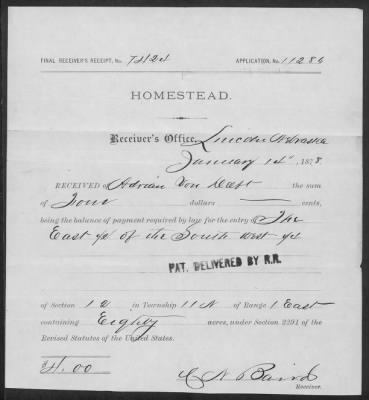 FINAL RECEIVER'S RECEIPT, No. 7424 APPLICATION, No. 11286
HOMESTEAD.
Receiver's Office, Lincoln Nebraska
January 14" 1878.
RECEIVED OF Adrian Von the sum
of Four dollars — cents,
being the balance of payment required by law for the entry of The
East ½ of the South West ¼
PAT. DELIVERED BY R.R.
of Section 12 in Township 11 N of Range 1 East
containing Eighty acres, under Section 2291 of the
Revised Statutes of the United States.
$4.00
Receiver.